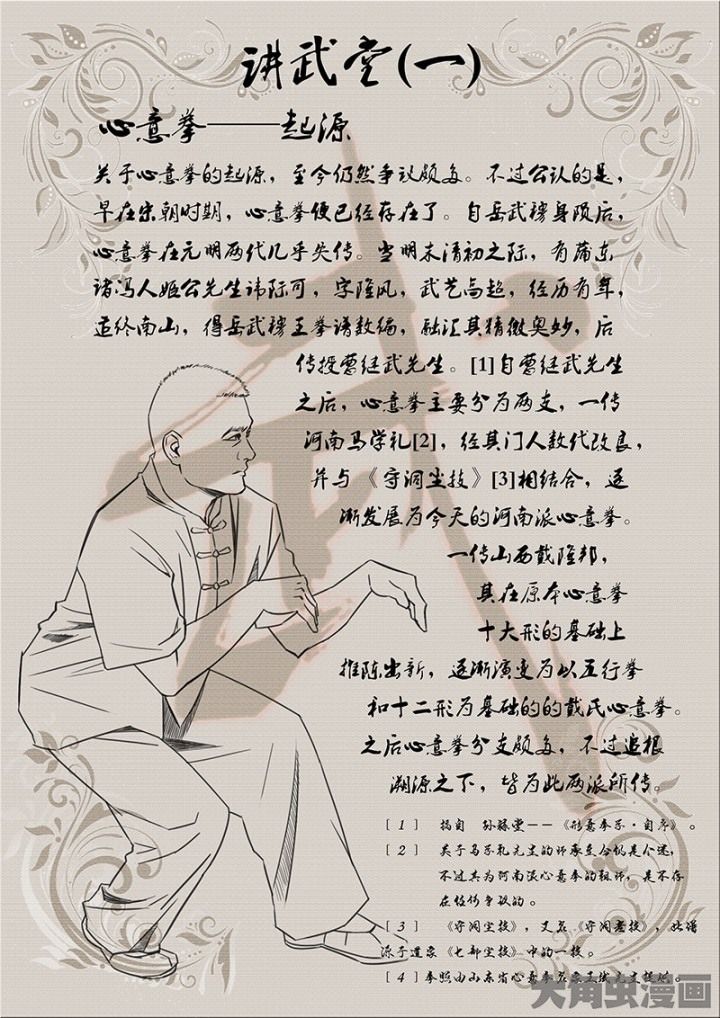 讲武堂(一)
心意拳——起源
关于心意拳的起源，至今仍然争议颇多。不过公认的是，
早在宋朝时期，心意拳便已经存在了。自岳武穆身陨后，
心意拳在元明两代几乎失传。当明末清初之际，有蒲东
诸冯人姬公先生讳际可，字隆风，武艺高超，经历有年，
适终南山，得岳武穆王拳谱数编，融汇其精微奥妙，后
传授曹继武先生。[1]自曹继武先生
之后，心意拳主要分为两支，一传
河南马学礼[2]，经其门人数代改良，
并与《守洞尘技》[3]相结合，逐
渐发展为今天的河南派心意拳。
一传山西戴隆邦，
其在原本心意拳
十大形的基础上
推陈出新，逐渐演变为以五行拳
和十二形为基础的的戴氏心意拳。
之后心意拳分支颇多，不过追根
溯源之下，皆为此两派所传。
[1] 摘自 孙禄堂--《形意拳学·自序》。
[2] 关于马学礼先生的师承至今仍是个迷，
不过其为河南派心意拳的祖师，是不存
在任何争议的。
[3] 《守洞尘技》，又名《守洞老技》，此谱
源于道家《七部尘技》中的一技。
[4]拳照由山东省心意拳名家
大角虫漫画